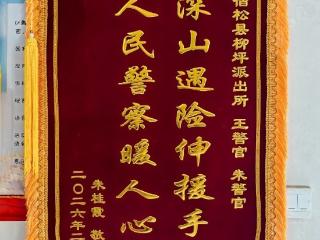 宿松县柳坪派出所 王警官 朱警官
深山遇险伸援手
人民警察暖人心
朱桂霞 敬
二〇二六年二